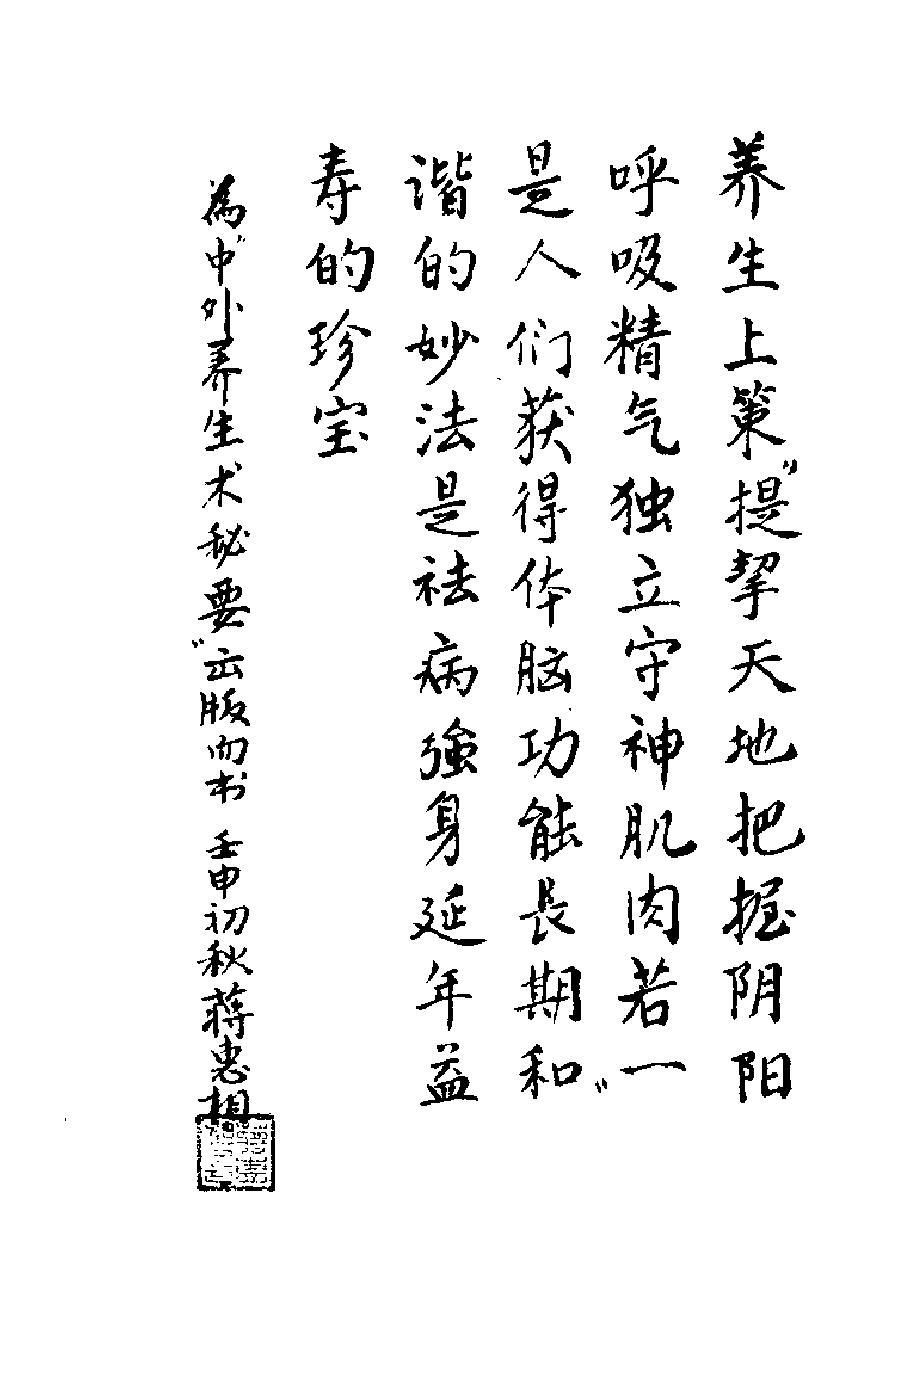 养生上策“提挈天地把握阴阳
呼吸精气独立守神肌肉若一”
是人们获得体脑功能長期和
谐的妙法是祛病強身延年益
寿的珍宝
為“中外养生术秘要”出版而书 壬申初秋蒋惠相